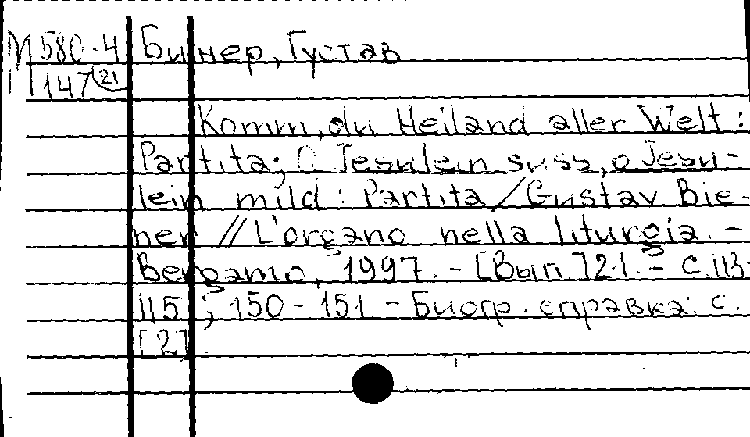 М 580-4 Бинер, Густав
П 147 (21
Komm, du Heiland aller Welt:
Partita; O Jesulein süss, o Jesu-
lein mild: Partita / Gustav Bie-
ner // L'organo nella liturgia. -
Bergamo, 1997. - [Вып.]21. - С.113-
115; 150-151 - Биогр. справка: с.
[2]